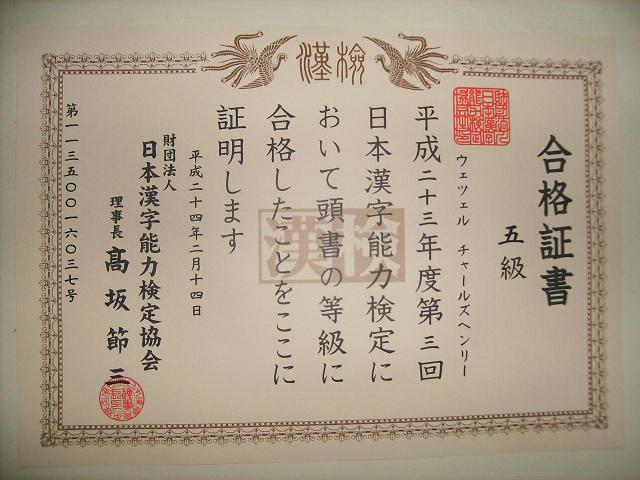 漢検
合格証書
五級
ウェツェル チャールズヘンリー
平成二十三年度第三回
日本漢字能力検定に
おいて頭書の等級に
合格したことをここに
証明します
漢検
平成二十四年二月十四日
財団法人
日本漢字能力検定協会
理事長 髙坂節三
第一一三五〇〇一六〇三七号